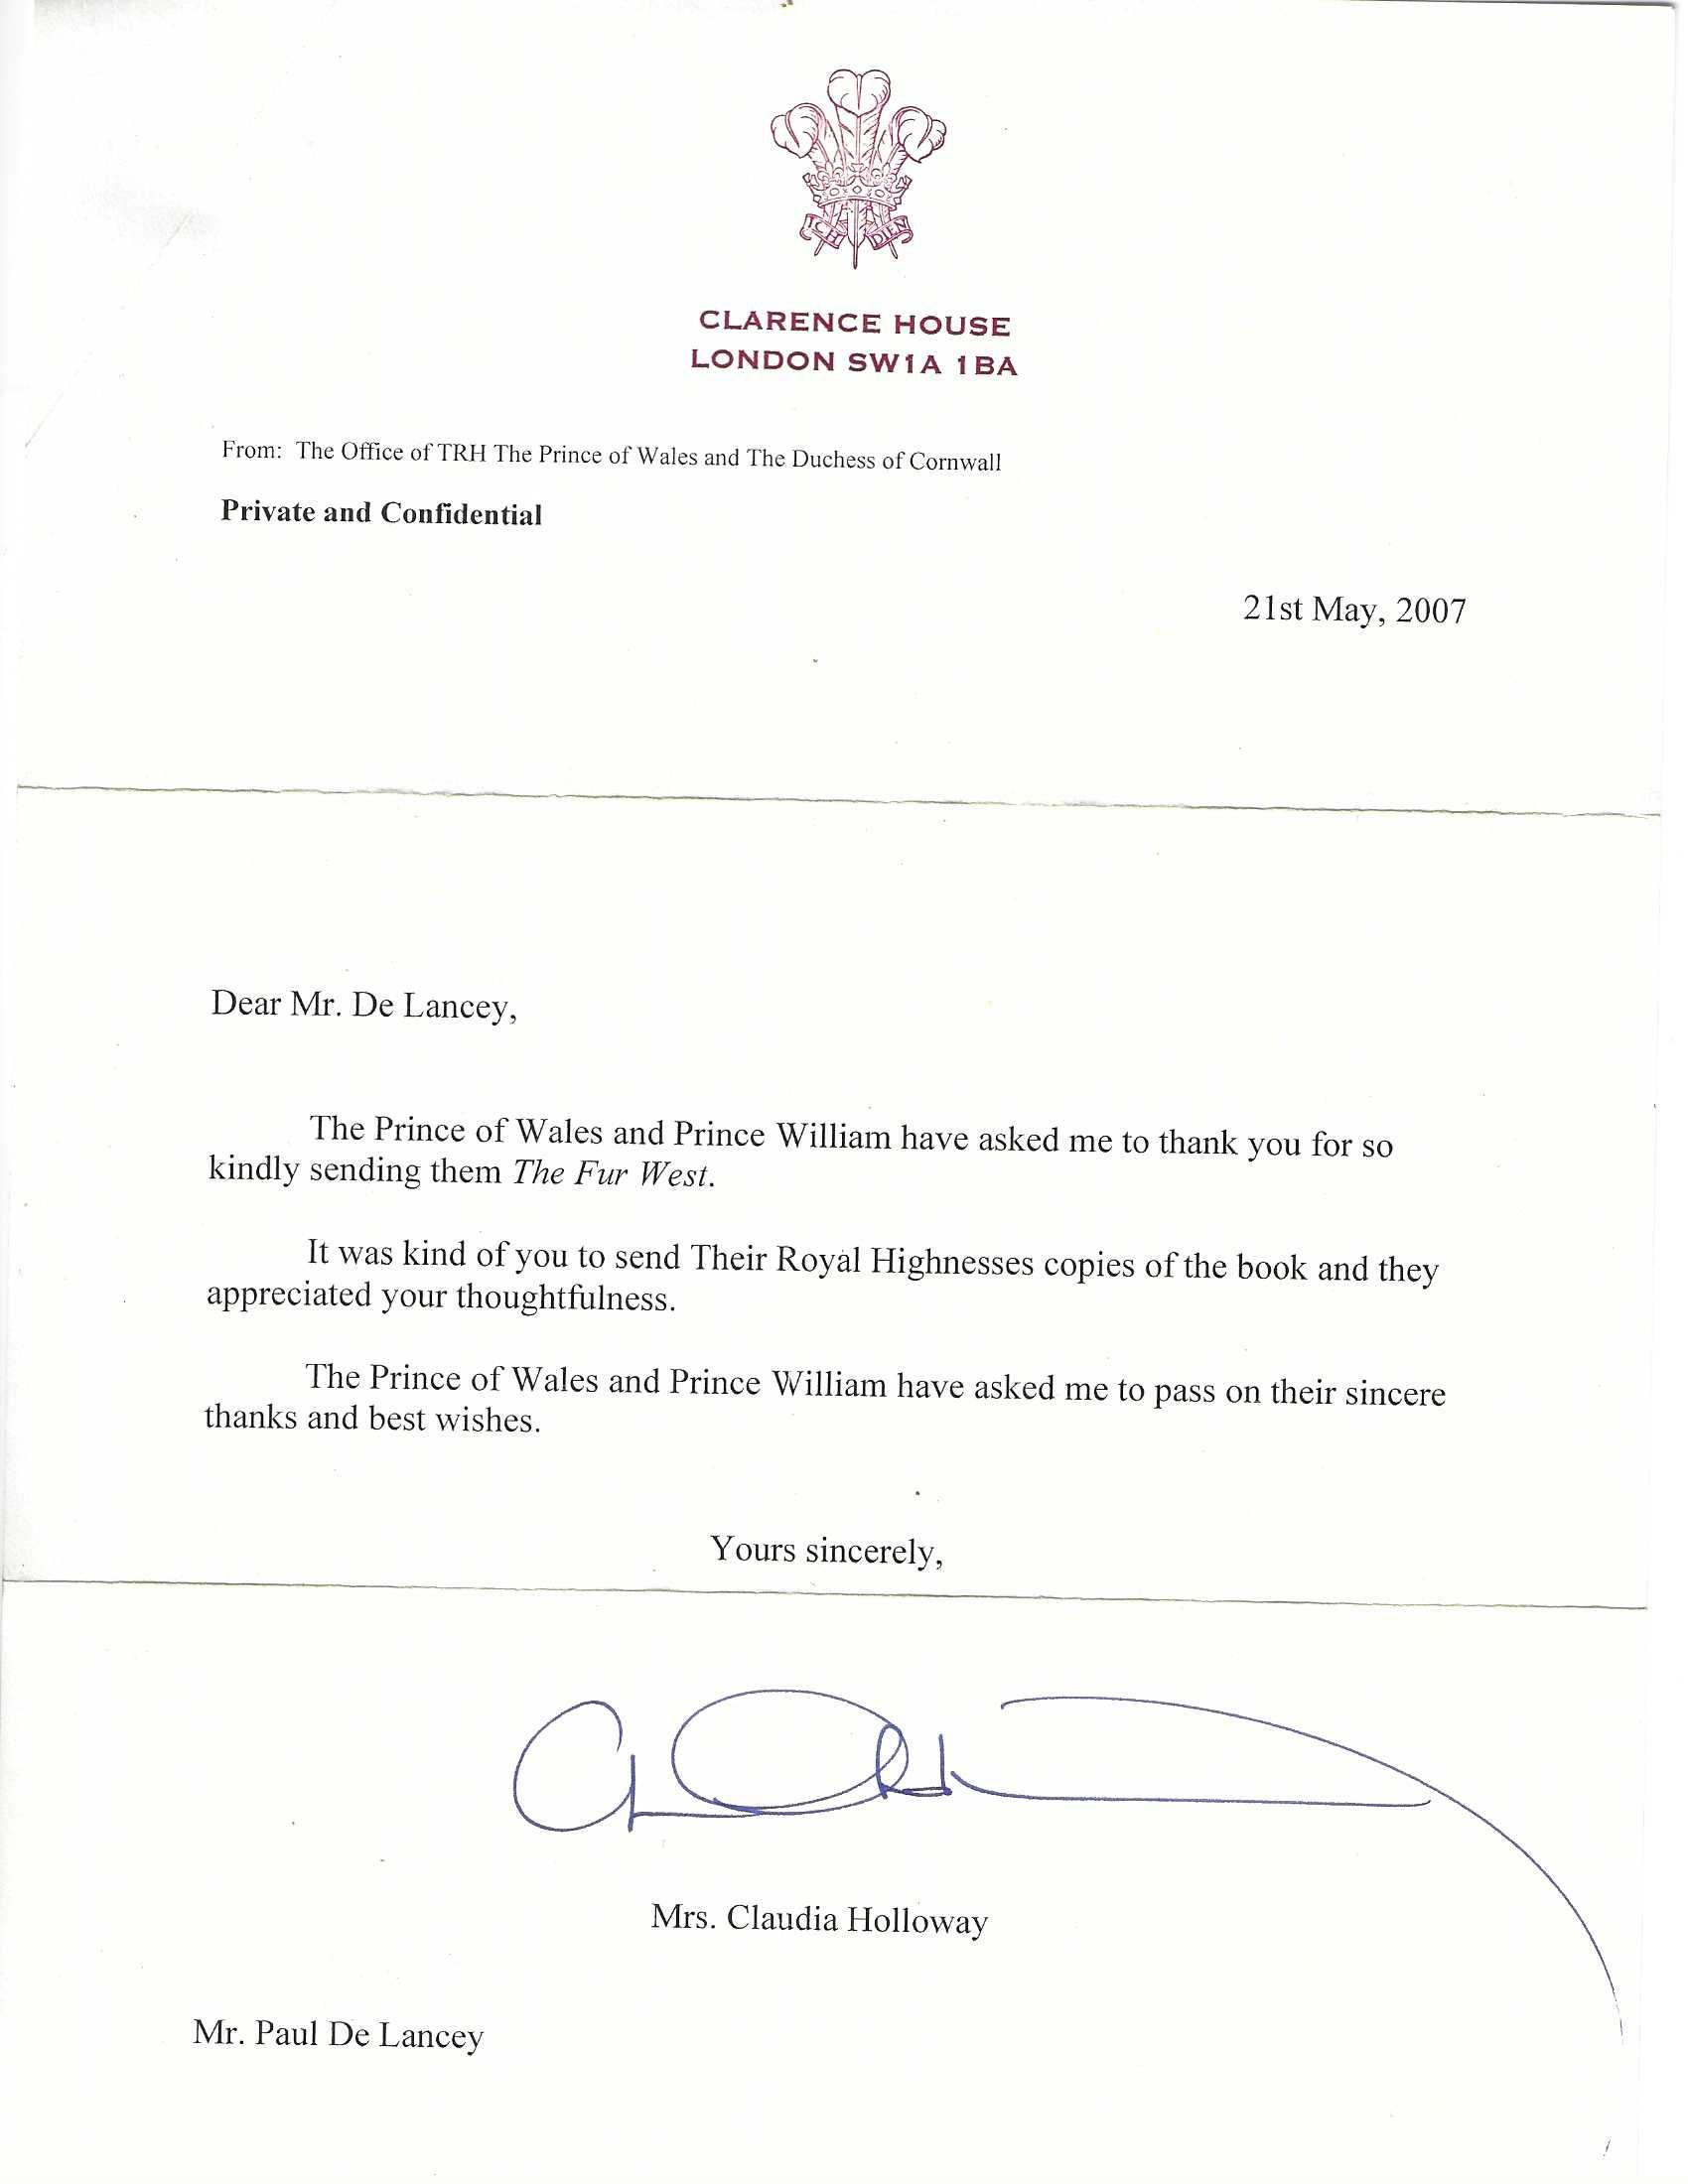 ICH DIEN
CLARENCE HOUSE
LONDON SW1A 1BA
From: The Office of TRH The Prince of Wales and The Duchess of Cornwall
Private and Confidential
21st May, 2007
Dear Mr. De Lancey,
The Prince of Wales and Prince William have asked me to thank you for so
kindly sending them The Fur West.
It was kind of you to send Their Royal Highnesses copies of the book and they
appreciated your thoughtfulness.
The Prince of Wales and Prince William have asked me to pass on their sincere
thanks and best wishes.
Yours sincerely,
Mrs. Claudia Holloway
Mr. Paul De Lancey